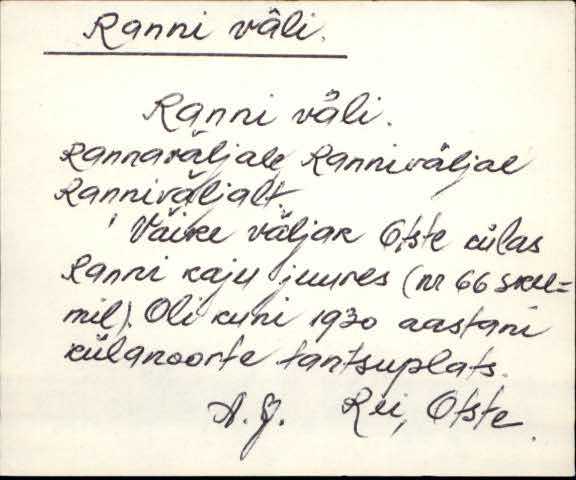 Ranni väli.
Ranni väli.
Rannaväljale Ranniväljal
Ranniväljalt.
Väike väljak Otste külas
Ranni kaju juures (nr 66 skee=
mil). Oli kuni 1930 aastani
külanoorte tantsuplats.
A. J. Rei, Otste.